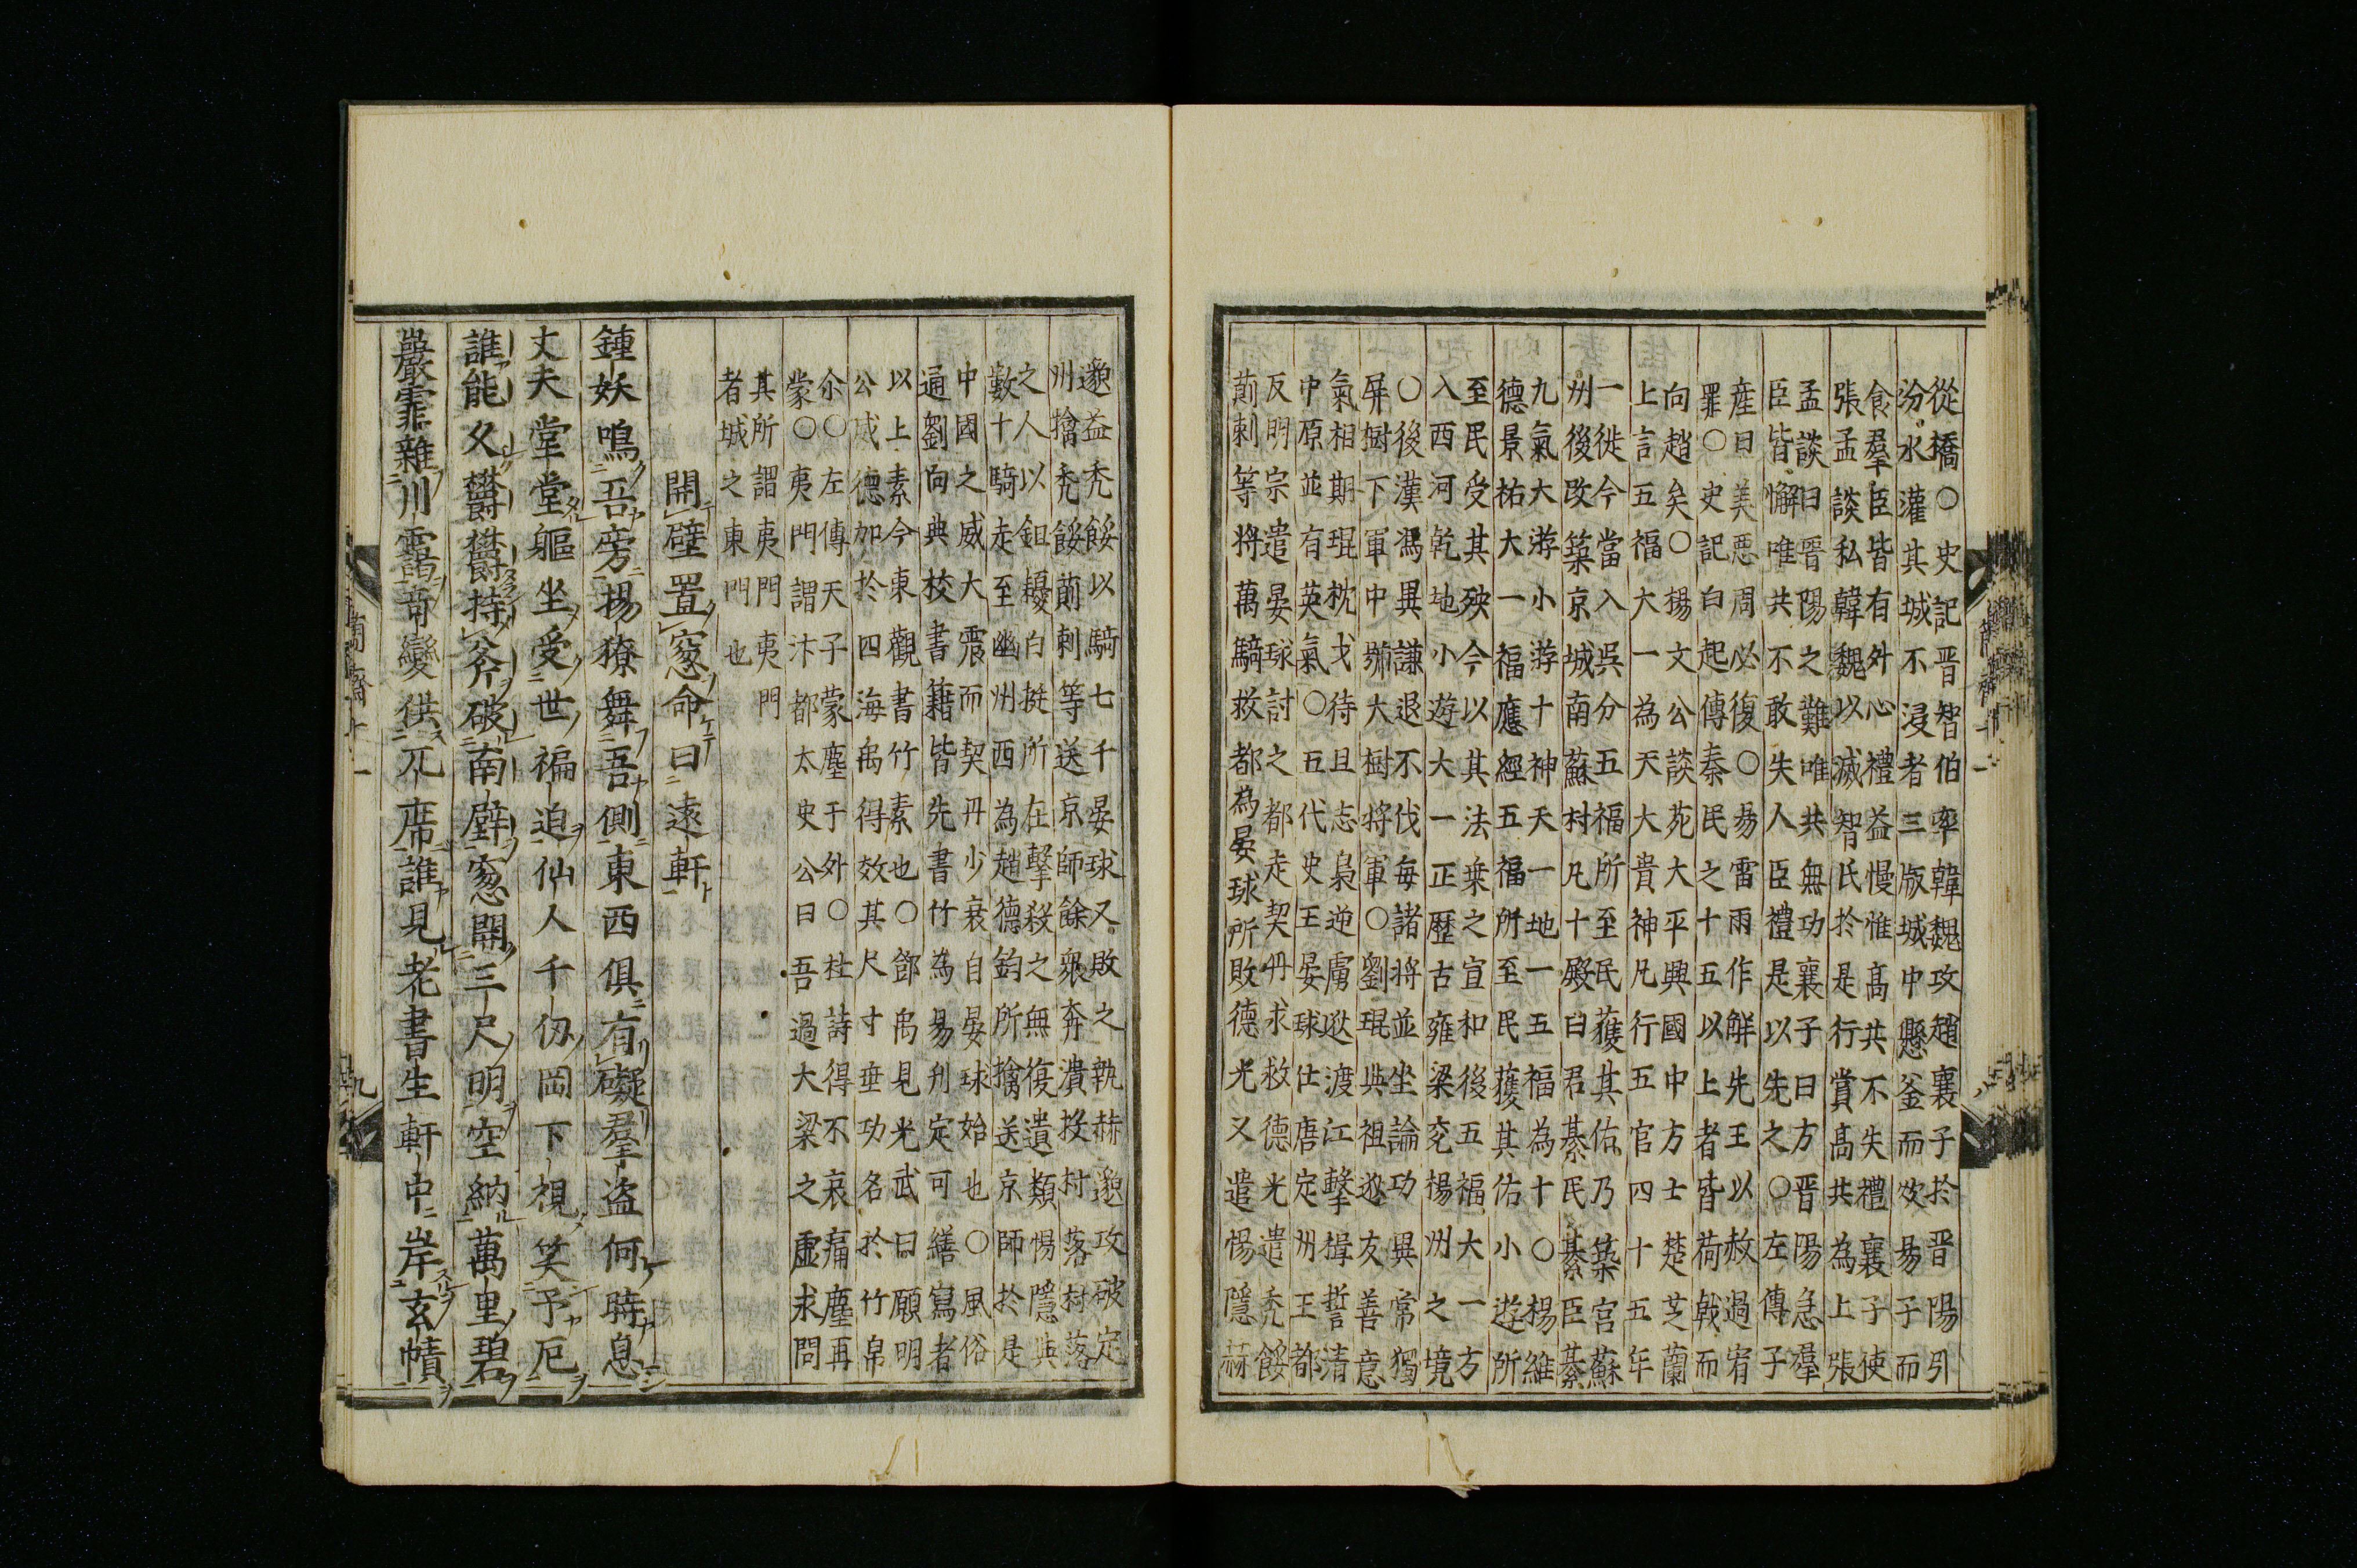 從橋○史記晋智伯率韓魏攻趙襄子於晋陽引
汾水灌其城不浸者三版城中懸釜而炊易子而
食羣臣皆有外心禮益慢惟高共不失禮襄子使
張孟談私韓魏以滅智氏於是行賞高共為上張
孟談曰晋陽之難唯共無功襄子曰方晋陽急羣
臣皆懈唯共不敢失人臣禮是以先之○左傳子
産曰美悪周必復○易雷雨作解先王以赦過宥
罪○史記白起傳秦民之十五以上者皆荷戟而
向趙矣○楊文公談苑大平興國中方士楚芝蘭
上言五福大一為天大貴神凡行五官四十五年
一徙今當入吳分五福所至民獲其佑乃築宮蘇
州後改築京城南蘇村凡十殿曰君綦民綦臣綦
九氣大游小游十神天一地一五福為十○楊維
德景祐大一福應經五福所至民獲其佑小遊所
至民受其殃今以其法乗之宣和後五福大一方
入西河乾地小遊大一正歴古雍梁兖楊州之境
○後漢馮異謙退不伐毎諸將並坐論功異常獨
屏樹下軍中號大樹將軍○劉琨與祖逖友善意
氣相期琨枕戈待旦志梟逆虜逖渡江擊楫誓清
中原並有英氣○五代史王晏球仕唐定州王都
反明宗遣晏球討之都走契丹求救德光遣禿餒
萴剌等將萬騎救都為晏球所敗德光又遣惕隱赫
邈益禿餒以騎七千晏球又敗之執赫邈攻破定
州擒禿餒萴剌等送京師餘衆奔潰投村落村落
之人以鉏耰白挺所在擊殺之無復遺類惕隱與
數十騎走至幽州西為趙德鈞所擒送京師於是
中國之威大震而契丹少衰自晏球始也○風俗
通劉向典校書籍皆先書竹為易刋定可繕寫者
以上素今東觀書竹素也○鄧禹見光武曰願明
公威德加於四海禹得效其尺寸垂功名於竹帛
尒○左傳天子蒙塵于外○杜詩得不哀痛塵再
蒙○夷門謂汴都太史公曰吾過大梁之虛求問
其所謂夷門夷門
者城之東門也
開壁置窓命曰遠軒
鍾妖鳴吾旁楊獠舞吾側東西俱有礙羣盜何時息
丈夫堂堂軀坐受世褊迫仙人千仭岡下視笑予厄
誰能久欝欝持斧破南壁窓開三尺明空納萬里碧
巖霏雜川靄奇變供几席誰見老書生軒中岸玄幘